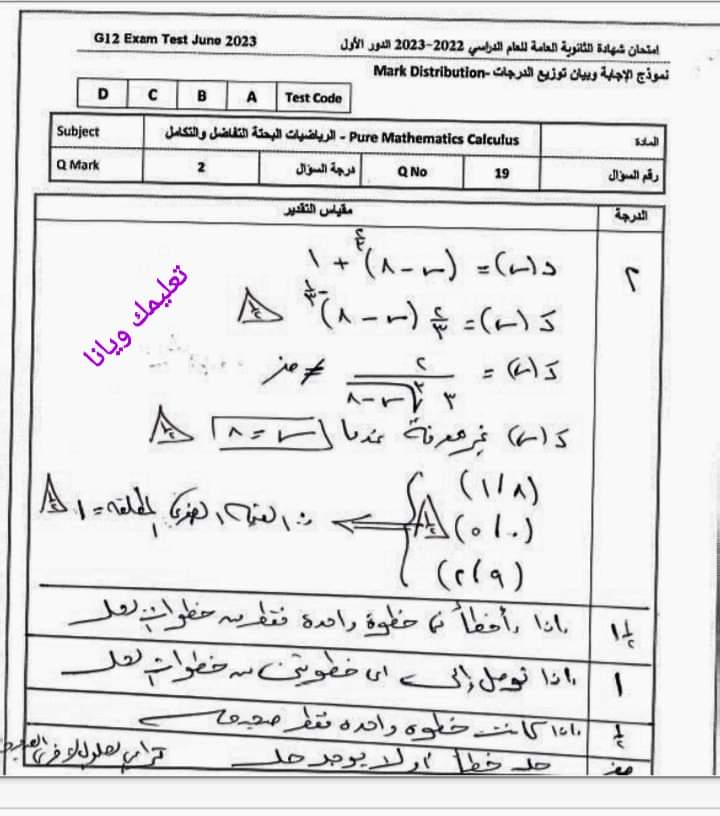 G12 Exam Test June 2023
امتحان شهادة الثانوية العامة للعام الدراسي 2022-2023 الدور الأول
نموذج الإجابة وبيان توزيع الدرجات -Mark Distribution
D C B A Test Code
Subject الرياضيات البحتة التفاضل والتكامل - Pure Mathematics Calculus المادة
Q Mark 2 درجة السؤال Q No 19 رقم السؤال
مقياس التقدير الدرجة
٢
د(س) = (س - ٨)^٢/٣ + ١
دَ(س) = ٢/٣ (س - ٨)^-١/٣ ١/٢
دَ(س) = ٢ / ٣ ∛س-٨ ≠ صفر
دَ(س) غير معرفة عندما س = ٨ ١/٢
(٨ ، ١)
(٠ ، ٥) ١/٢ ∴ القيمة الصغرى المطلقة = ١ ١/٢
(٩ ، ٢)
تعليمك ويانا
١ ١/٢ إذا أخطأ في خطوة واحدة فقط من خطوات الحل
١ إذا توصل إلى أي خطوتين من خطوات الحل
١/٢ إذا كانت خطوة واحدة فقط صحيحة
صفر حل خطأ أو لا يوجد حل
تراعى الحلول الأخرى